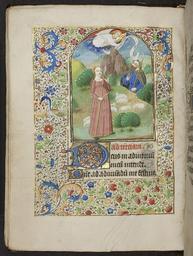 Ad terciam
Deus in adiutoriu
meum intende.
Dne ad adiuuadu me festina